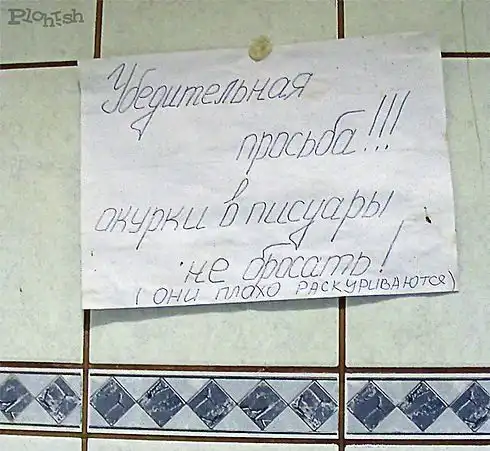 Plohish
Убедительная
просьба!!!
окурки в писуары
не бросать!
(они плохо РАСКУРИВАЮТСЯ)